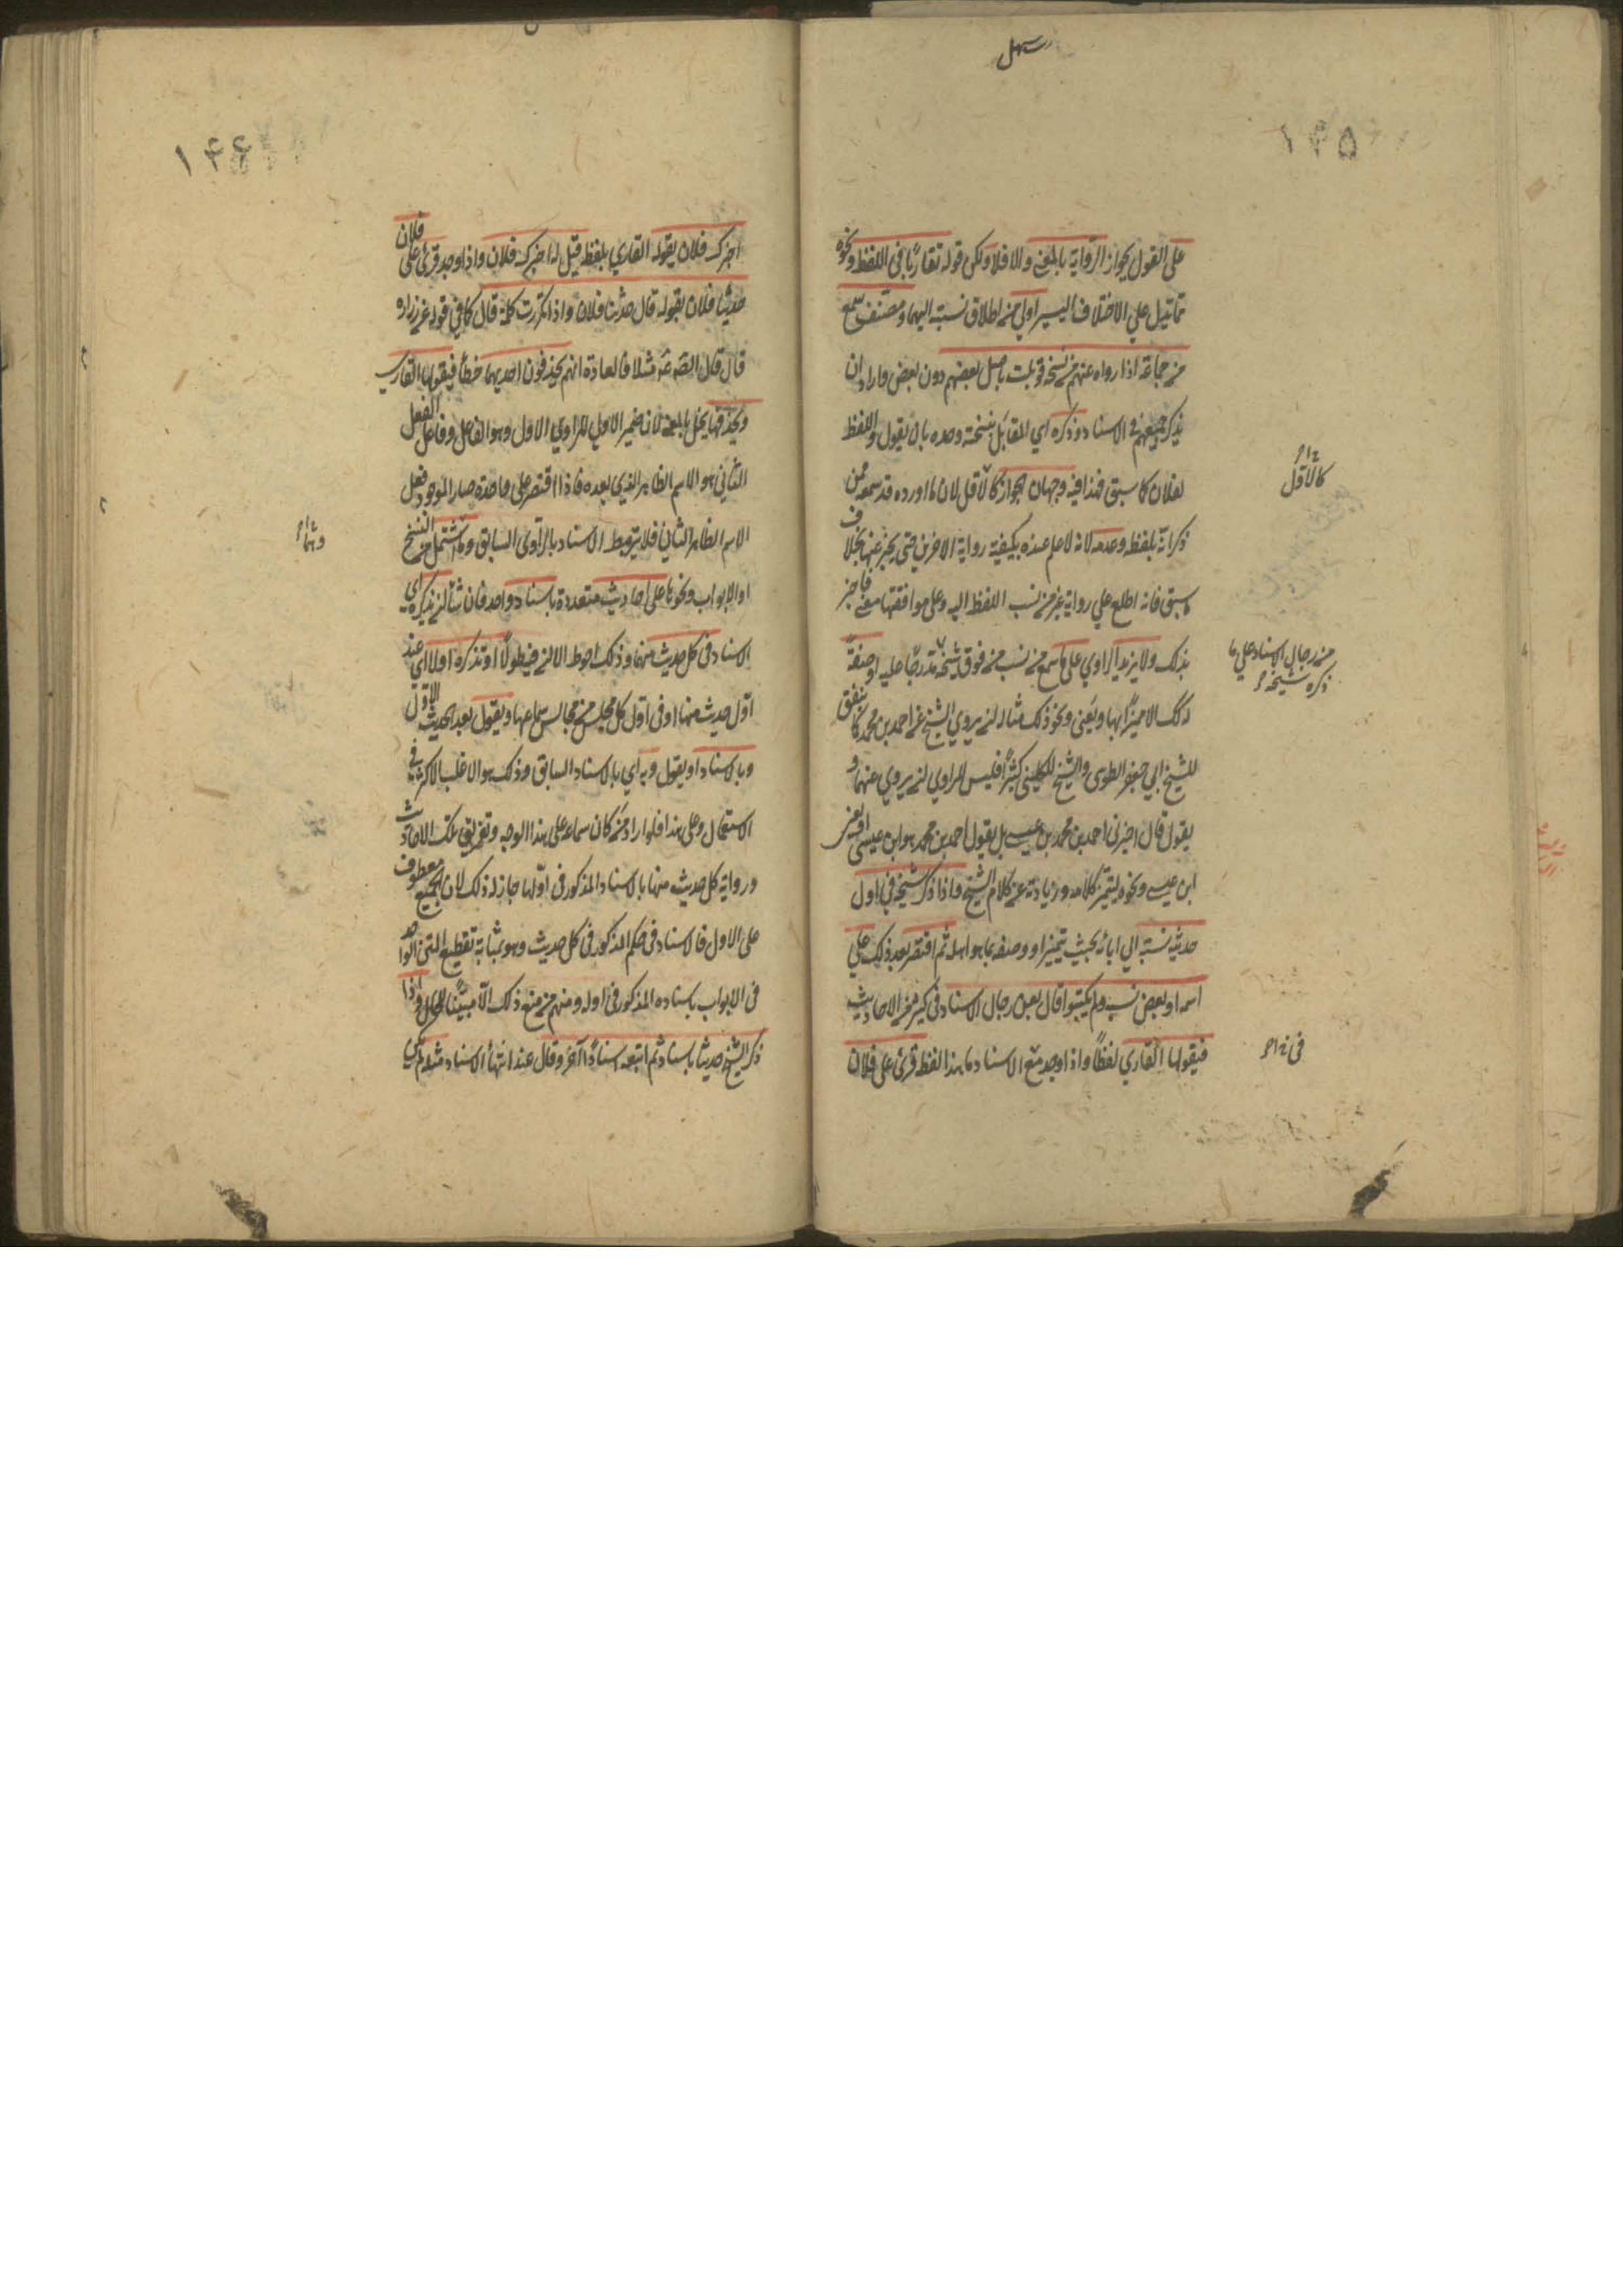 سهل
١٤٥
على القول بجواز الرواية بالمعنى والا فلا ولكن قوله تقاربا في اللفظ ونحوه
مما تيل على الاختلاف اليسير اولى من اطلاق نسبته اليهما ومصنف سمع
من جماعة اذا رواه عنهم من نسخة قوبلت باصل بعضهم دون بعض واراد ان
يذكر جميعهم في الاسناد وذكره اي المقابل بنسخته وحده بان يقول واللفظ
لفلان كما سبق فهذا فيه وجهان الجواز كالاول لان ما اورده قد سمعه ممن
كالاول
ذكر انه بلفظه وعدمه لانه لا علم عنده بكيفية رواية الاخرين حتى يخبر عنها بخلاف
ما سبق فانه اطلع على رواية غير من نسب اللفظ اليه وعلى موافقتها معنى فاخبر
بذلك ولا يزيد الراوي على ما سمع من نسب من فوق شيخه مدرجا عليه او صفة
من رجال الاسناد على ما
ذكره شيخه
لذلك الا مميزا بها ويعني ونحو ذلك مثاله ان يروي الشيخ عن احمد بن محمد كما يتفق
للشيخ ابي جعفر الطوسي والشيخ الكليني كثيرا فليس للراوي ان يروي عنهما و
يقول قال اخبرني احمد بن محمد بن عيسى بل يقول احمد بن محمد هو ابن عيسى او يعني
ابن عيسى ونحوه ليتميز كلامه وزيادته عن كلام الشيخ واذا ذكر شيخه في اول
حديثه نسبه الى ابائه بحيث يتميز او وصفه بما هو اهله ثم اقتصر بعد ذلك على
اسمه او بعض نسبه ولم يكتبوا قال بين رجال الاسناد في كثير من الاحاديث
فيقولها القاري لفظا واذا وجد مع الاسناد ما هذا لفظه قرئ على فلان
في
١٤٦
اخبرك فلان يقوله القاري بلفظ قيل له اخبرك فلان واذا وجد قرئ على فلان
حدثنا فلان يقوله قال حدثنا فلان واذا تكررت كلمة قال كما في قوله عن زرارة
قال قال الصادق مثلا فالعادة انهم يحذفون احديهما خطا فيقولها القاري
وبحذفها يخل بالمعنى لان ضمير الاولى للراوي الاول وهو الفاعل وفاعل الفعل
الثاني هو الاسم الظاهر الذي بعده فاذا اقتصر على واحدة صار الموجود فعل
الاسم الظاهر الثاني فلا يرتبط الاسناد بالراوي السابق وما اشتمل من النسخ
او الابواب ونحوها على احاديث متعددة باسناد واحد فان شاء ان يذكره اي
الاسناد في كل حديث منها وذلك احوط الا ان فيه طولا او تذكره اولا اي عند
اول حديث منها او في اول كل مجلس من مجالس سماعها ويقول بعد الحديث الاول
وبالاسناد او يقول وبه اي بالاسناد السابق وذلك هو الاغلب الاكثر في
الاستعمال وعلى هذا فلو اراد من كان سماعه على هذا الوجه وتفريق تلك الاحاديث
ورواية كل حديث منها بالاسناد المذكور في اولها جاز له ذلك لان الجميع معطوف
على الاول فالاسناد في حكم المذكور في كل حديث وهو بمثابة تقطيع المتن الواحد
في الابواب باسناده المذكور في اوله ومنهم من منع ذلك الا مبينا للحال واذا
ذكر الشيخ حديثا باسناد ثم اتبعه اسنادا اخر وقال عند انتهاء الاسناد مثله